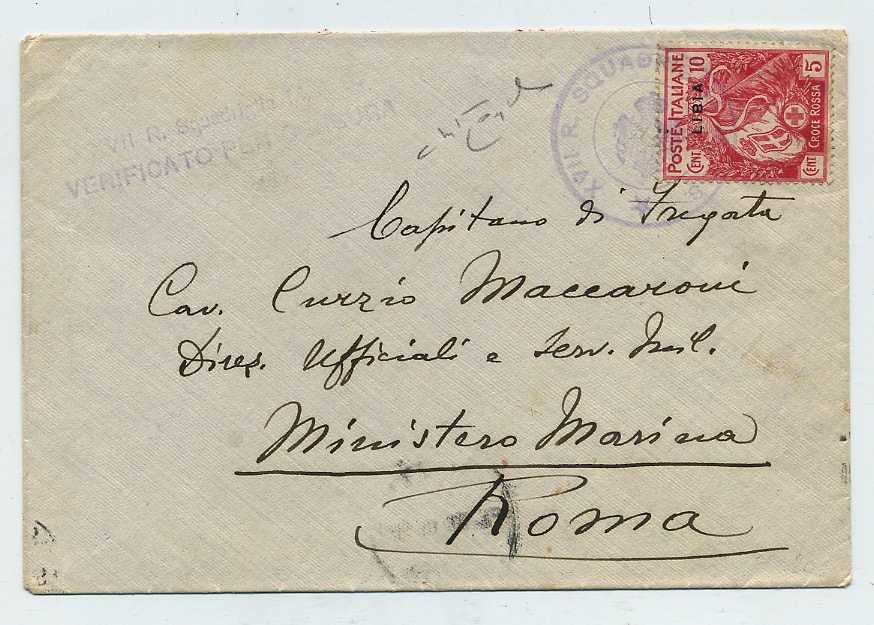 XVII R. Squadriglia
VERIFICATO PER CENSURA
XVII R. SQUAD
POSTE ITALIANE
CENT 10
LIBIA
CENT 5
CROCE ROSSA
Capitano di Fregata
Cav. Curzio Maccaroni
Direz. Ufficiali e Serv. Mil.
Ministero Marina
Roma